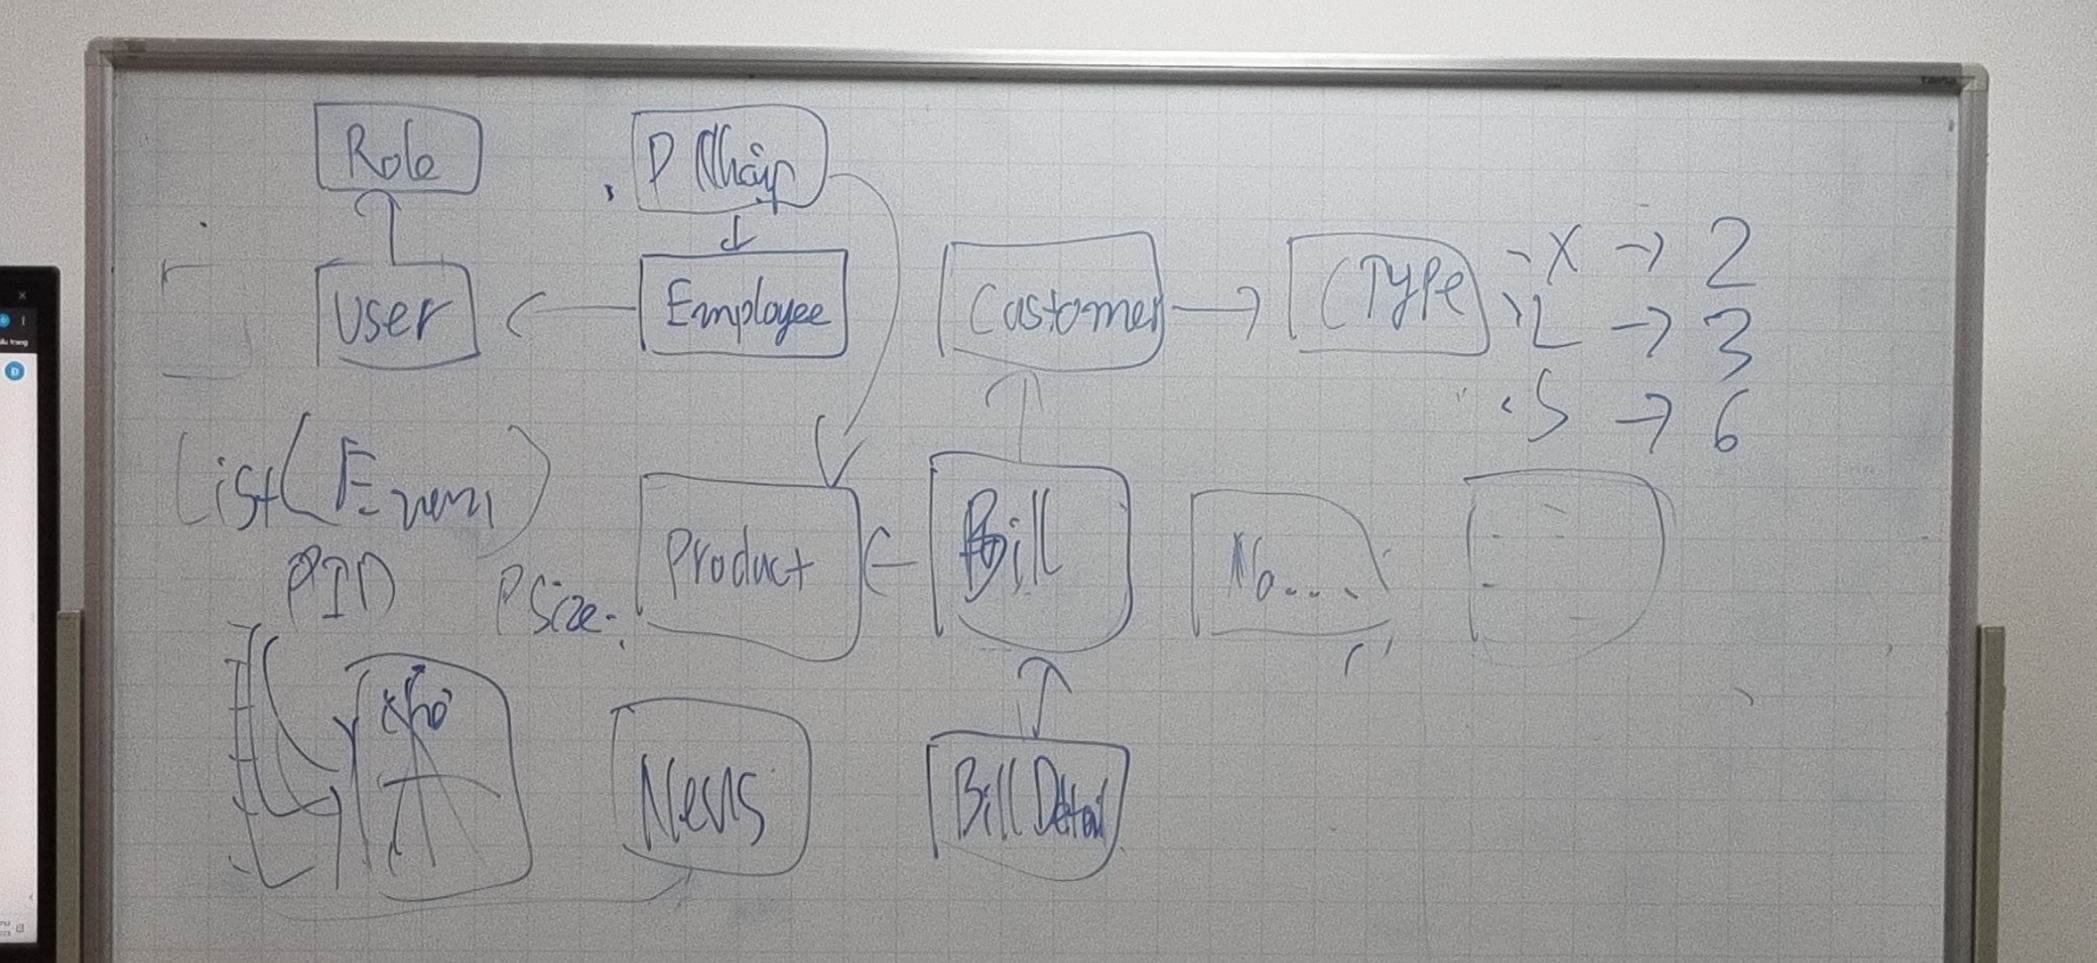 Role
P Nhập
User
Employee
Customer
CType
X → 2
L → 3
S → 6
List(Enum)
PID
PSize
Product
Bill
No....
Kho
News
Bill Detail